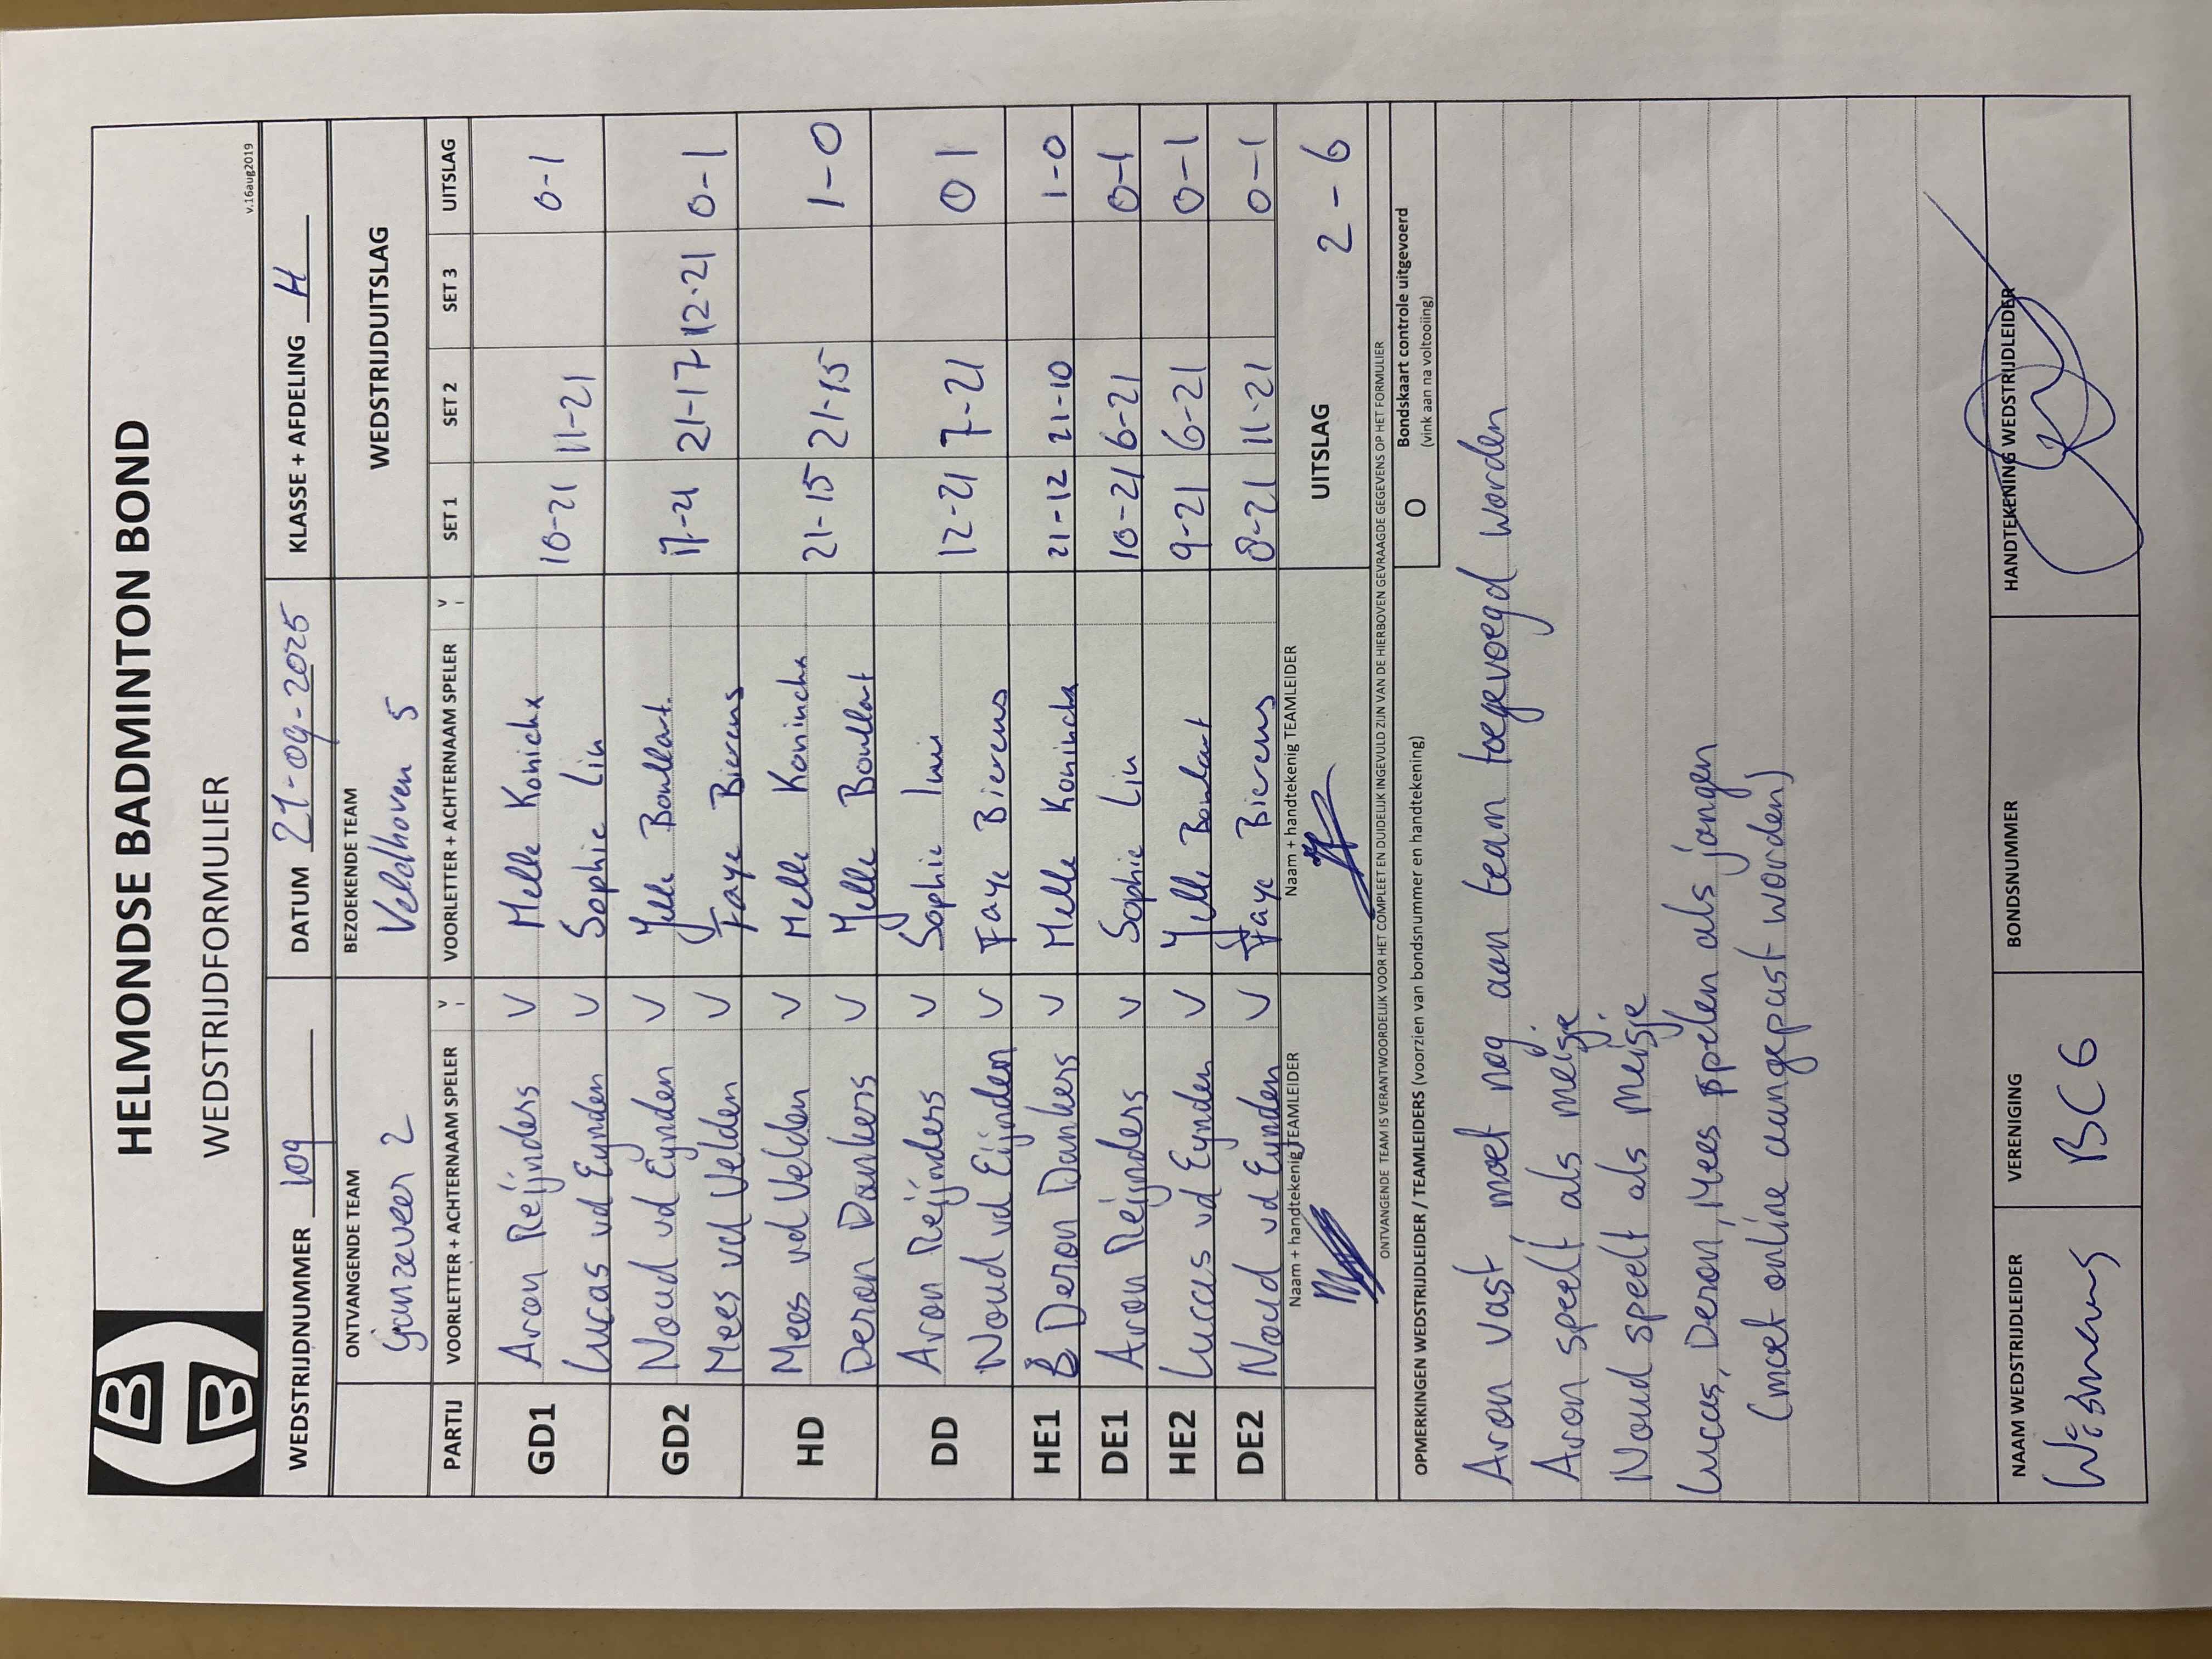 HELMONDSE BADMINTON BOND
WEDSTRIJDFORMULIER
v.16aug2019
WEDSTRIJDNUMMER 109 DATUM 21-09-2025 KLASSE + AFDELING H
ONTVANGENDE TEAM BEZOEKENDE TEAM WEDSTRIJDUITSLAG
Ganzeveer 2 Veldhoven 5
PARTIJ VOORLETTER + ACHTERNAAM SPELER V VOORLETTER + ACHTERNAAM SPELER V SET 1 SET 2 SET 3 UITSLAG
GD1 Aron Reijnders V Melle Konickx 10-21 11-21 0-1
Lucas vd Eynden V Sophie Lin
GD2 Noud vd Eynden V Jelle Boullart 17-21 21-17 12-21 0-1
Mees vd Velden V Faye Bierens
HD Mees vd Velden V Melle Koninckx 21-15 21-15 1-0
Deron Dankers V Jelle Boullart
DD Aron Reijnders V Sophie 12-21 7-21 0 1
Noud vd Eijnden V Faye Bierens
HE1 Deron Dankers V Melle Koninckx 21-12 21-10 1-0
DE1 Aron Reijnders V Sophie Lin 10-21 6-21 0-1
HE2 Luccas vd Eynden V Jelle Boulart 9-21 6-21 0-1
DE2 Noud vd Eynden V Faye Bierens 8-21 11-21 0-1
Naam + handtekenig TEAMLEIDER Naam + handtekenig TEAMLEIDER UITSLAG 2-6
ONTVANGENDE TEAM IS VERANTWOORDELIJK VOOR HET COMPLEET EN DUIDELIJK INGEVULD ZIJN VAN DE HIERBOVEN GEVRAAGDE GEGEVENS OP HET FORMULIER
OPMERKINGEN WEDSTRIJDLEIDER / TEAMLEIDERS (voorzien van bondsnummer en handtekening) O Bondskaart controle uitgevoerd
(vink aan na voltooiing)
Aron vast, moet nog aan team toegevoegd worden
Aron speelt als meisje
Noud speelt als meisje
Luccas, Deron, Mees spelen als jongen
(moet online aangepast worden)
NAAM WEDSTRIJDLEIDER VERENIGING BONDSNUMMER HANDTEKENING WEDSTRIJDLEIDER
BCG